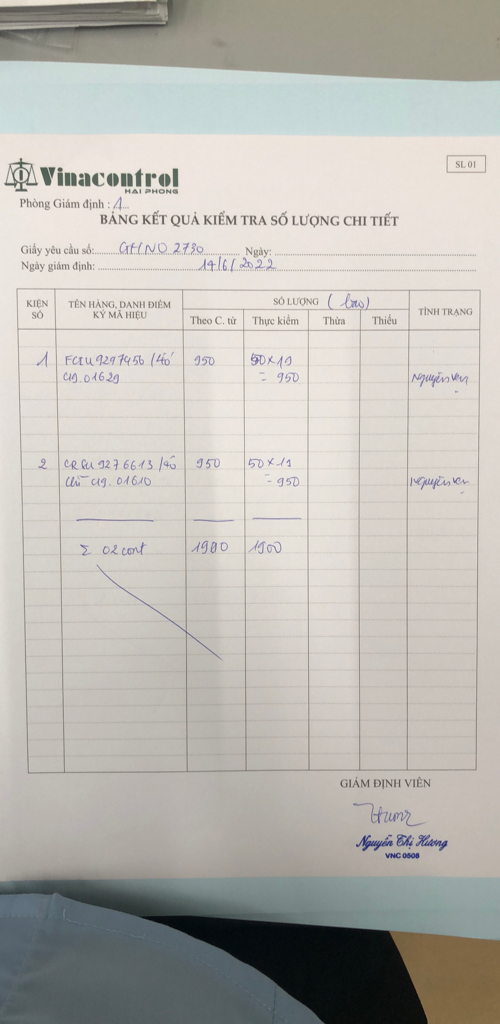 SL 01
Vinacontrol
HAI PHONG
Phòng Giám định : 1
BẢNG KẾT QUẢ KIỂM TRA SỐ LƯỢNG CHI TIẾT
Giấy yêu cầu số: GHNO 2730 Ngày:
Ngày giám định: 14/6/2022
KIỆN SỐ TÊN HÀNG, DANH ĐIỂM KÝ MÃ HIỆU SỐ LƯỢNG (bao) TÌNH TRẠNG
Theo C. từ Thực kiểm Thừa Thiếu
1 FCIU9297456 /40' 950 50×19
C19.01629 = 950 Nguyên vẹn
2 CRSU 9276613 /40 950 50×19
C19.01610 = 950 Nguyên vẹn
Σ 02 cont 1900 1900
GIÁM ĐỊNH VIÊN
Nguyễn Thị Hương
VNC 0508